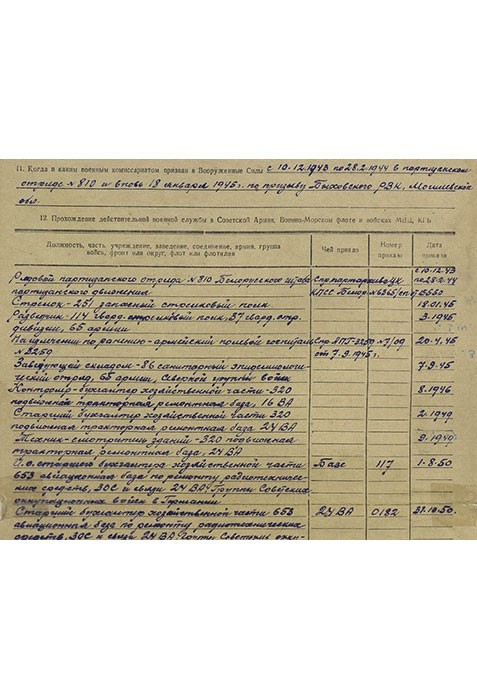 11. Когда и каким военным комиссариатом призван в Вооруженные Силы с 10.12.1943 по 28.2.1944 в партизанском
отряде №810 и вновь 18 января 1945г. по призыву Быховского РВК, Могилевской
обл.
12. Прохождение действительной военной службы в Советской Армии, Военно-Морском флоте и войсках МВД, КГБ
Должность, часть, учреждение, заведение, соединение, армия, группа войск, фронт или округ, флот или флотилия
Чей приказ
Номер приказа
Дата приказа
Рядовой партизанского отряда №810 Белорусского штаба
партизанского движения
Спр. партархива ЦК
КПСС Белор.
с 10.12.43
по 28.2.44
Стрелок - 251 запасный стрелковый полк.
18.01.45
Разведчик - 114 гвард. стрелковый полк, 37 гвард. стр.
дивизии, 65 армии
3.1945
На излечении по ранению - армейский полевой госпиталь
№3259
от 7.9.1945г.
20.4.45
Заведующий складом - 86 санитарный эпидемиологи-
ческий отряд, 65 армии, Северной группы войск
7.9.45
Контролер - бухгалтер хозяйственной части - 320
подвижная тракторная ремонтная база, 16 ВА
8.1946
Старший бухгалтер хозяйственной части 320
подвижная тракторная ремонтная база 24 ВА
2.1949
Техник-смотритель зданий - 320 подвижная
тракторная ремонтная база, 24 ВА
9.1949
И.о. старшего бухгалтера хозяйственной части
653 авиационная база по ремонту радиотехниче-
ских средств, ЗОС и связи 24 ВА Группы Советских
оккупационных войск в Германии
Базе
117
1.8.50
Старший бухгалтер хозяйственной части 653
авиационная база по ремонту радиотехнических
средств, ЗОС и связи 24 ВА Группы Советских окку-
24 ВА
0182
31.10.50.